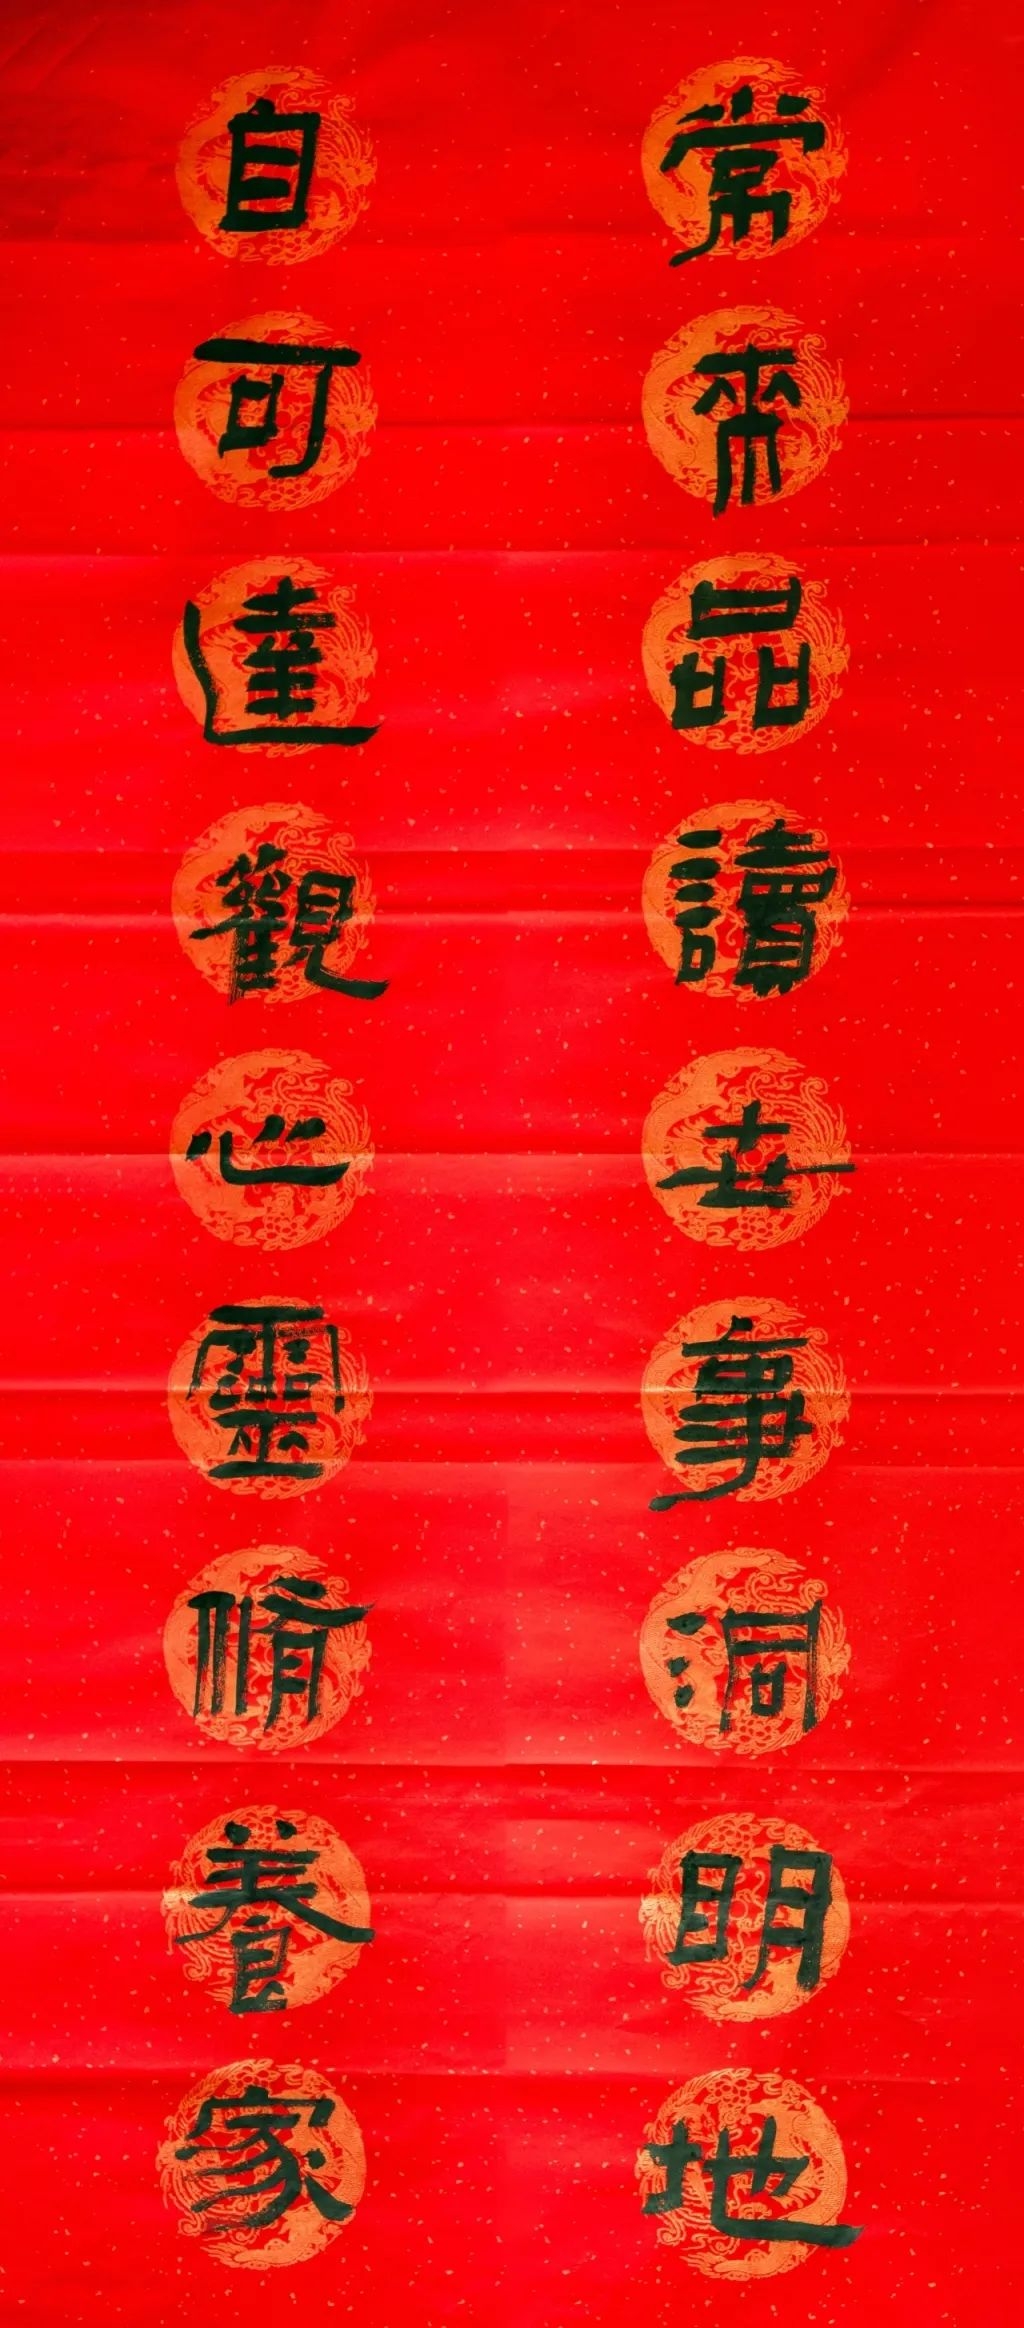 常來品讀世事洞明地
自可達觀心靈脩養家